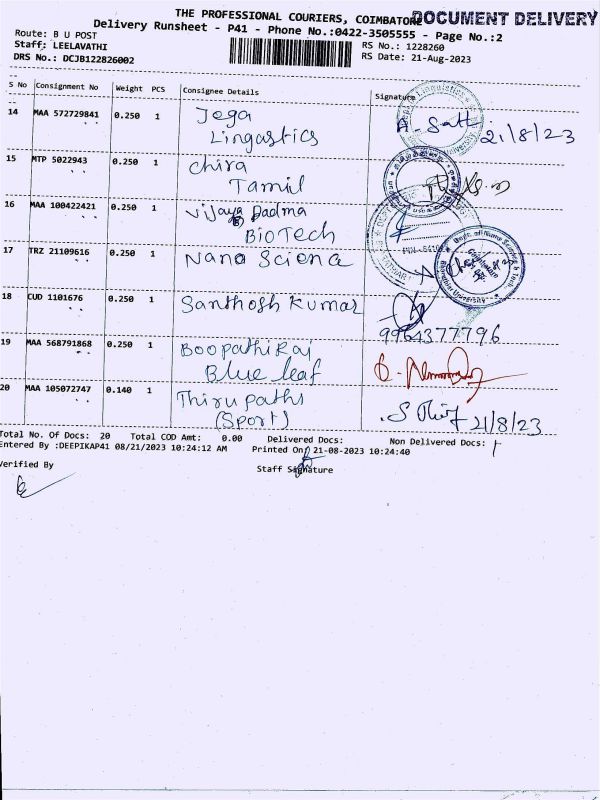 THE PROFESSIONAL COURIERS, COIMBATORE
DOCUMENT DELIVERY
Delivery Runsheet - P41 - Phone No.:0422-3505555 - Page No.:2
Route: B U POST
Staff: LEELAVATHI
RS No.: 1228260
DRS No.: DCJB122826002
RS Date: 21-Aug-2023
S No Consignment No Weight PCS Consignee Details Signature
14 MAA 572729841 0.250 1 Jega
Lingastics
21/8/23
15 MTP 5022943 0.250 1 chira
Tamil
16 MAA 100422421 0.250 1 Vijaya Padma
BIOTech
17 TRZ 21109616 0.250 1 Nano Sciena
18 CUD 1101676 0.250 1 Santhosh Kumar
9964377796
19 MAA 568791868 0.250 1 Boopathi Raj
Blue leaf
20 MAA 105072747 0.140 1 Thirupaths
(Sport)
21/8/23
Total No. Of Docs: 20 Total COD Amt: 0.00 Delivered Docs: Non Delivered Docs:
Entered By :DEEPIKAP41 08/21/2023 10:24:12 AM Printed On: 21-08-2023 10:24:40
Verified By
Staff Signature